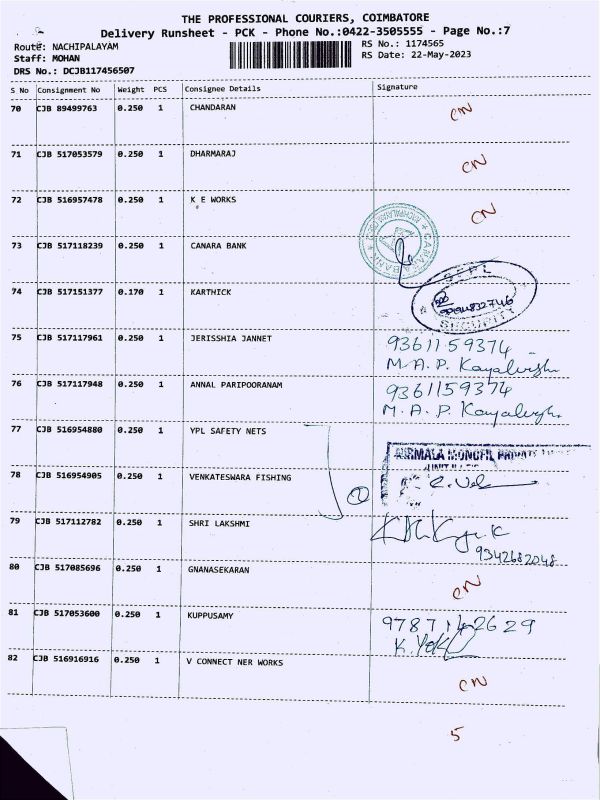 THE PROFESSIONAL COURIERS, COIMBATORE
Delivery Runsheet - PCK - Phone No.:0422-3505555 - Page No.:7
Route: NACHIPALAYAM RS No.: 1174565
Staff: MOHAN RS Date: 22-May-2023
DRS No.: DCJB117456507
S No Consignment No Weight PCS Consignee Details Signature
70 CJB 89499763 0.250 1 CHANDARAN CN
71 CJB 517053579 0.250 1 DHARMARAJ CN
72 CJB 516957478 0.250 1 K E WORKS CN
73 CJB 517118239 0.250 1 CANARA BANK CANARA BANK
74 CJB 517151377 0.170 1 KARTHICK SECURITY
75 CJB 517117961 0.250 1 JERISSHIA JANNET 9361159374
M. A. P. Kayalvizhi
76 CJB 517117948 0.250 1 ANNAL PARIPOORANAM 9361159374
M. A. P. Kayalvizhi
77 CJB 516954880 0.250 1 YPL SAFETY NETS
78 CJB 516954905 0.250 1 VENKATESWARA FISHING 2
79 CJB 517112782 0.250 1 SHRI LAKSHMI
9342682048
80 CJB 517085696 0.250 1 GNANASEKARAN CN
81 CJB 517053600 0.250 1 KUPPUSAMY 9787142629
82 CJB 516916916 0.250 1 V CONNECT NER WORKS CN
5